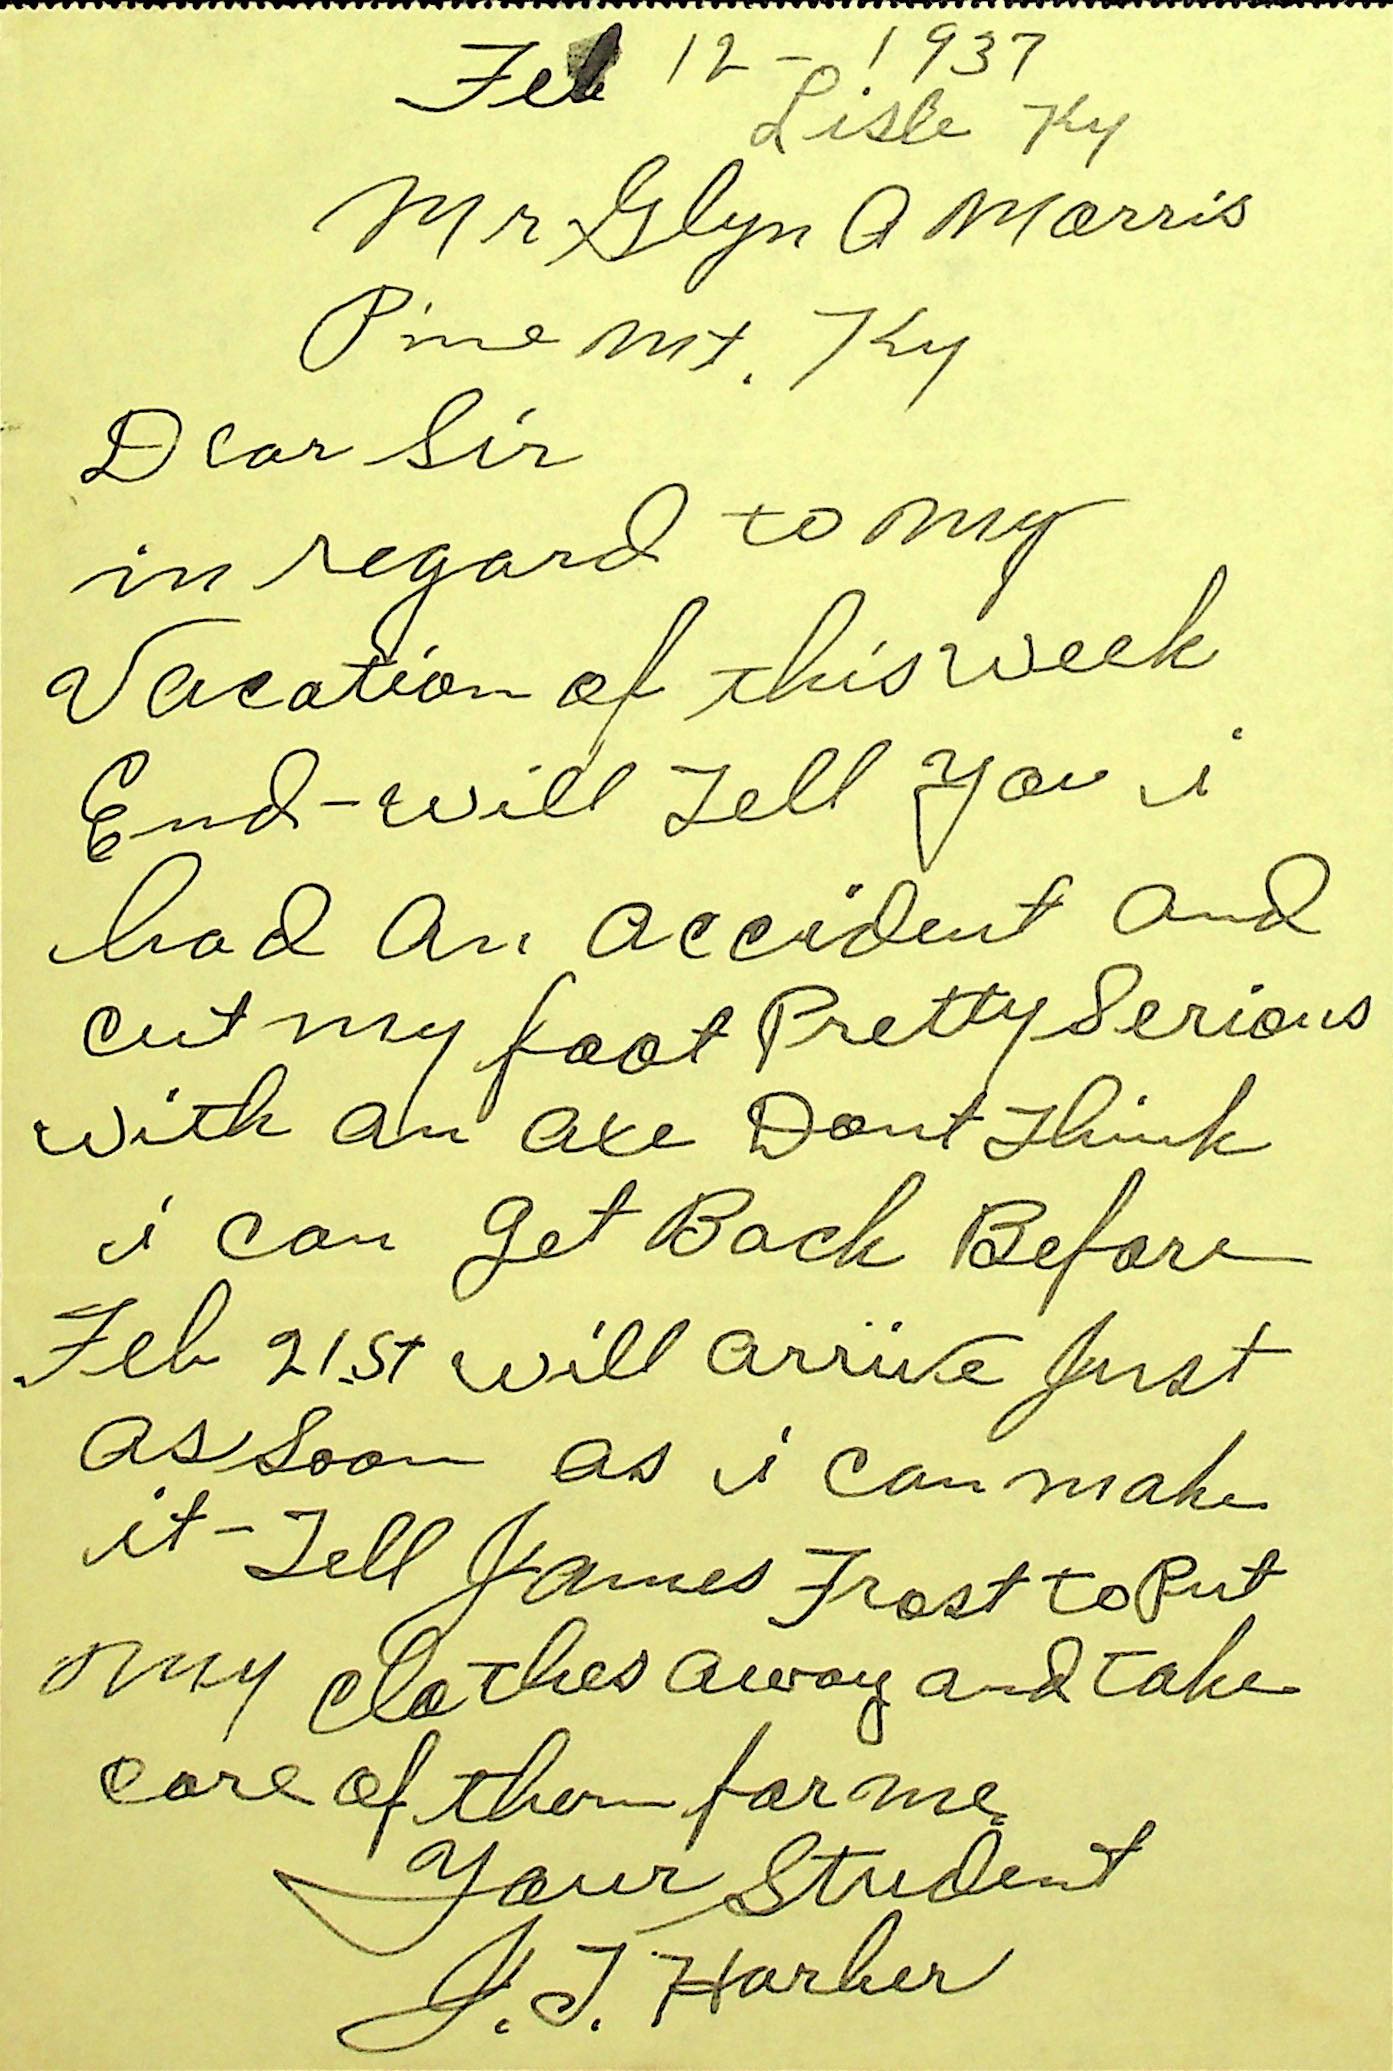 Feb 12 - 1937
Lisle Ky
Mr Glyn A Morris
Pine Mt. Ky
Dear Sir
in regard to my
Vacation of this week
End - will Tell You i
had An accident and
cut my foot Pretty Serious
with an axe Dont Think
i can get Back Before
Feb 21.st will arrive Just
as Soon as i can make
it - Tell James Frost to Put
my clothes away and take
care of them for me.
Your Student
J. T. Harber